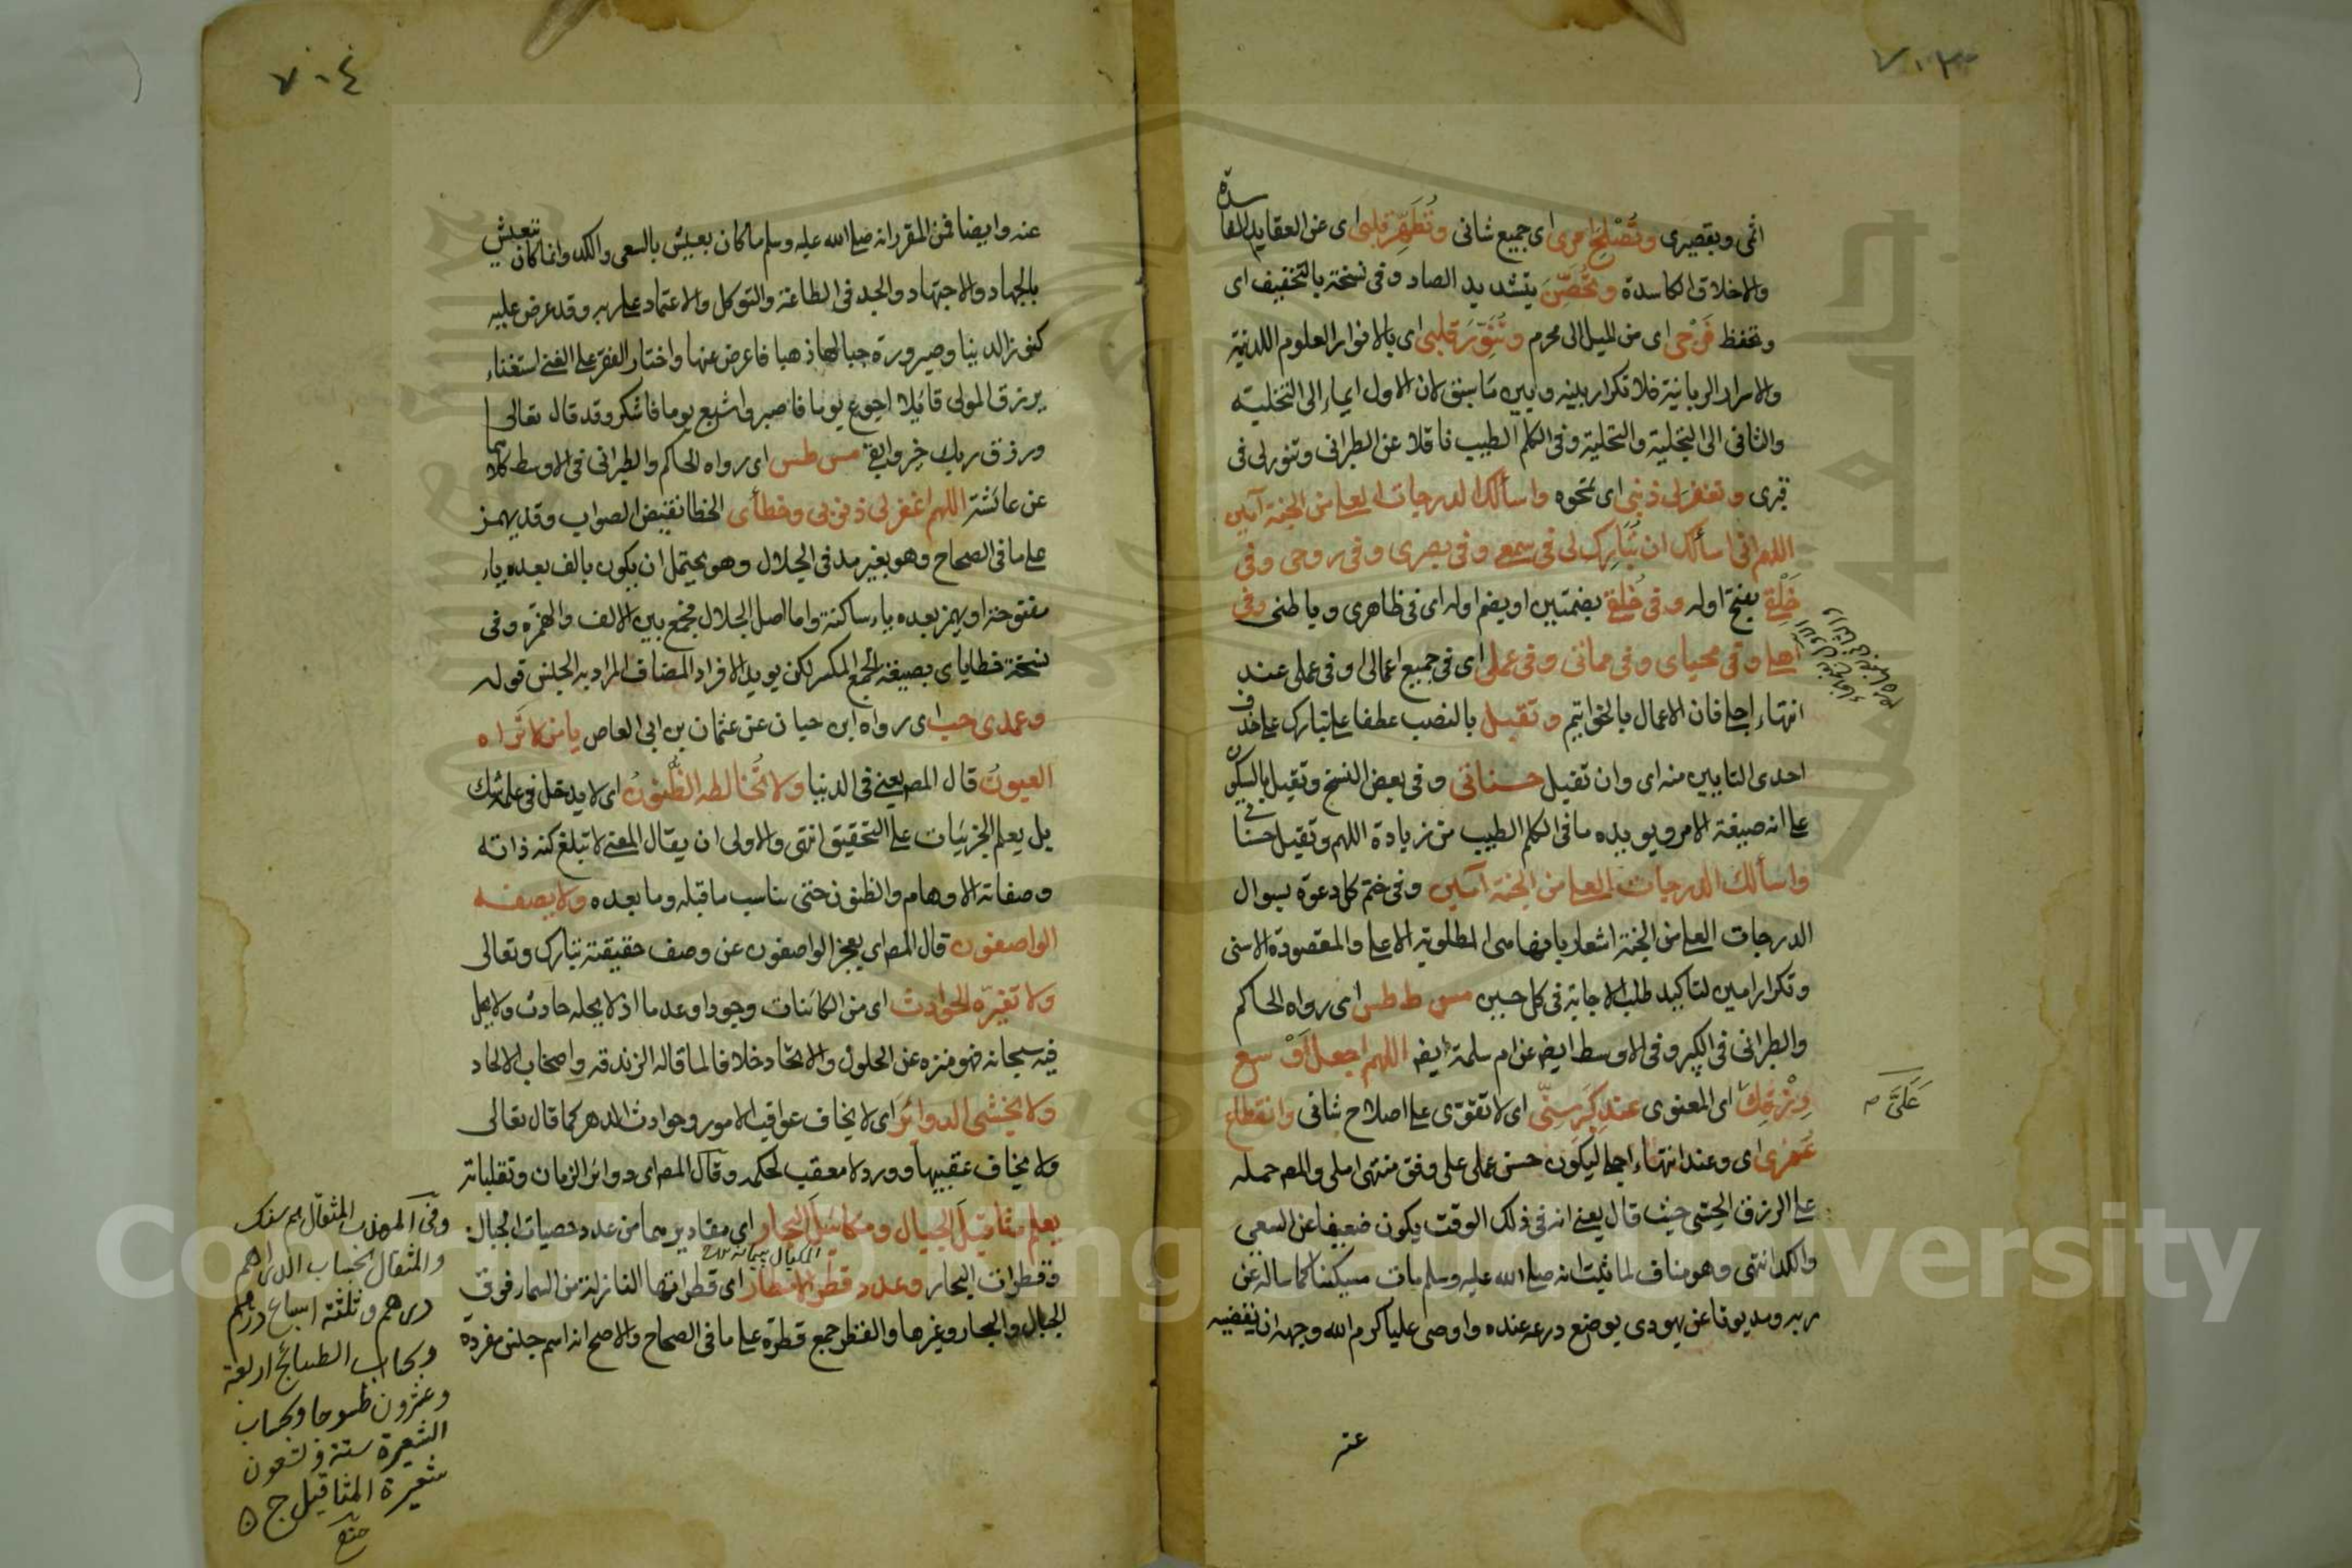 ٧٠٣
اثمي وبقصيرى وتُصْلِحَ امرى اى جميع شانى وتُطَهِّرَ قلبى اى عن العقايد الفا
سدة
والاخلاق الكاسدة وتُحَصِّنَ بتشديد الصاد وفى نسخة بالتخفيف اى
وتحفظ فَرْجى اى من الميل الى محرم وتُنَوِّرَ قلبى اى بالانوار العلوم اللدنية
والاسرار الربانية فلا تكرار بينه وبين ما سبق لان الاول ايماء الى التخلية
والثانى الى التجلية والتحلية وفى الكلم الطيب ناقلا عن الطبرانى وتنور لى فى
قبرى وتغفر لى ذنبى اى تمحوه واسألك الدرجات العلے من الجنة آمين
اللهم انى اسألك ان تُبَارِكَ لى فى سمعى وفى بصرى وفى روحى وفى
خَلْقى بفتح اوله وفى خُلُقى بضمتين او بضم اوله اى فى ظاهرى وباطنى وفى
اهلے وفى محياى وفى مماتى وفى عملى اى فى جميع اعمالى او فى عملى عند
انتهاء اجلے فان الاعمال بالخواتيم وتقبل بالنصب عطفا على تبارك على حذف
احدى التايين منه اى وان تقبل حسناتى وفى بعض النسخ وتقبل بالسكون
على انه صيغة الامر ويويده ما فى الكلم الطيب من زيادة اللهم وتقبل حسناتى
واسألك الدرجات العلے من الجنة آمين وفى ختم كل دعوة بسوال
الدرجات العلے من الجنة اشعار بانها هى المطلوبة الاعلى والمقصودة الاسنى
وتكرار امين لتاكيد طلب الاجابة فى كل حين مس ط طس اى رواه الحاكم
والطبرانى فى الكبير وفى الاوسط ايضا عن ام سلمة ايضا اللهم اجعل اَوْسع
رِزْقِكَ اى المعنوى عند كِبَرِ سِنّى اى لاتقوّى على اصلاح شانى وانقطاع
عَلَىَّ
عُمُرى اى وعند انتهاء اجلے ليكون حسن عملى على وفق منتهى املى والمص حمله
على الرزق الحِسّى حيث قال يعنى انه فى ذلك الوقت يكون ضعيفا عن السعى
والكد انتهى وهو مناف لما ثبت انه صلى الله عليه وسلم مات مسكينا كما ساله عن
ربه ومديونا عن يهودى بوضع درعه عنده واوصى عليا كرم الله وجهه ان يقضيه
عنه
٧٠٤
عنه وايضا فمن المقرر انه صلى الله عليه وسلم ما كان يعيش بالسعى والكد وانما كان يتعيش
بالجهاد والاجتهاد والجد فى الطاعة والتوكل والاعتماد على ربه وقد عرض عليه
كنوز الدينا وصيرورة جبالها ذهبا فاعرض عنها واختار الفقر على الغنى استغناء
برزق المولى قائلا اجوع يوما فاصبر واشبع يوما فاشكر وقد قال تعالى
ورزق ربك خير وابقى مس طس اى رواه الحاكم والطبرانى فى الاوسط كلاهما
عن عائشة اللهم اغفر لى ذنوبى وخطأى الخطا نقيض الصواب وقد يهمز
على ما فى الصحاح وهو بغير مد فى الجلال وهو يحتمل ان يكون بالف بعده ياء
مفتوحة او بهمز بعده ياء ساكنة واما اصل الجلال فجمع بين الالف والهمزة وفى
نسخة خطاياى بصيغة الجمع المكسر لكن يويد الافراد المضاف المراد به الجنس قوله
وعمدى حب اى رواه ابن حبان عن عثمان بن ابى العاص يا من لا تَراه
العيونُ قال المص يعنى فى الدنيا ولا تُخالطه الظُّنونُ اى لا يدخل فى علمه شك
بل يعلم الجزئيات على التحقيق انتهى والاولى ان يقال المعنى لا تبلغ كنه ذاته
وصفاته الاوهام والظنون حتى يناسب ما قبله وما بعده ولا يصفه
الواصفون قال المص اى يعجز الواصفون عن وصف حقيقته تبارك وتعالى
ولا تغيّره الحوادث اى من الكائنات وجودا وعدما اذ لا يحله حادث ولا يحل
فيه سبحانه فهو منزه عن الحلول والاتحاد خلافا لما قاله الزندقه واصحاب الالحاد
ولا يخشى الدوائر اى لا يخاف عواقب الامور وحوادث الدهر كما قال تعالى
ولا يخاف عقبيها وورد لا معقب لحكمه وقال المص اى دوائر الزمان وتقلباته
يعلم مثاقيل الجبال ومكائيل البحار اى مقاديرهما من عدد حصيات الجبال
وقطرات البحار وعدد قطر الامطار اى قطراتها النازلة من السماء فوق
الجبال والبحار وغيرها والقطر جمع قطرة على ما فى الصحاح والاصح انه اسم جنس مفرده
والمثقال بحساب الدراهم
درهم وثلثة اسباع درهم
وبحساب الطسائج اربعة
وعشرون طسوجا وبحساب
الشعرة ستة وتسعون
شعيرة المثاقيل ج